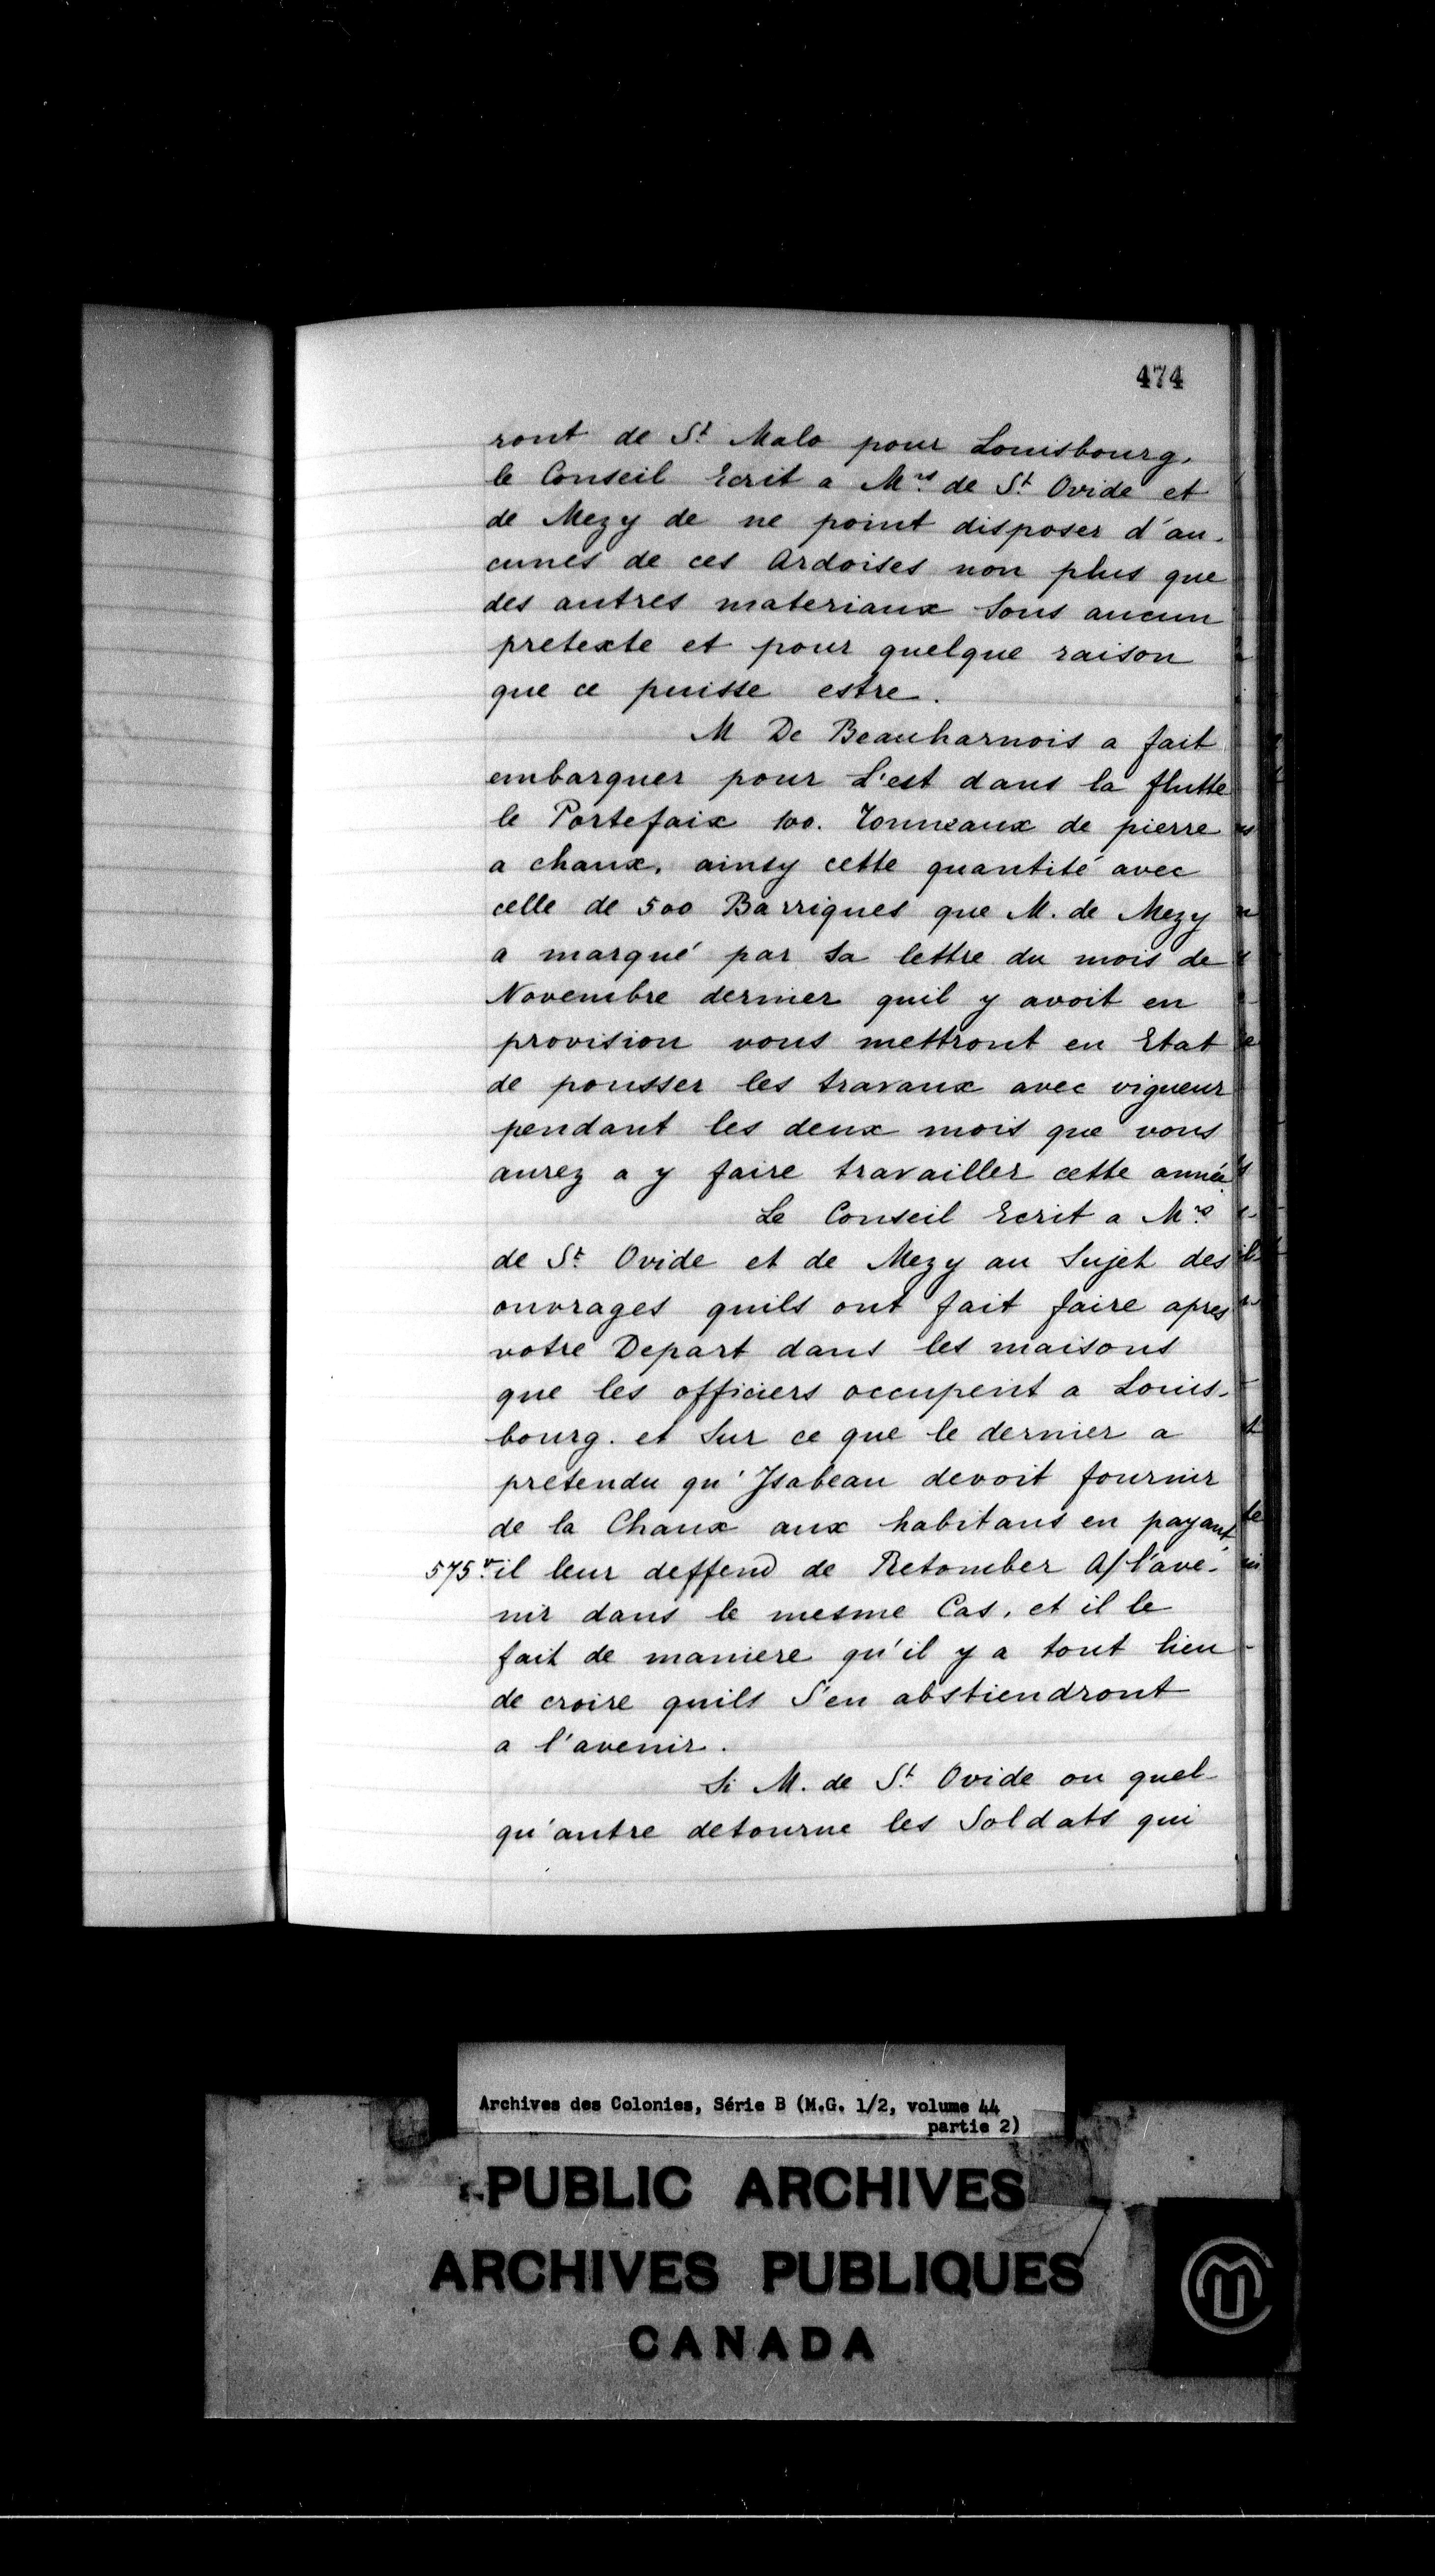 474
ront de St Malo pour Louisbourg.
le Conseil Ecrit a Mrs de St Ovide et
de Mezy de ne point disposer d'au-
cunes de ces Ardoises non plus que
des autres materiaux sous aucun
pretexte et pour quelque raison
que ce puisse estre.
M De Beauharnois a fait
embarquer pour L'est dans la flutte
le Portefaix 100. Tonneaux de pierre
a chaux, ainsy cette quantité avec
celle de 500 Barriques que M. de Mezy
a marqué par sa lettre du mois de
Novembre dernier quil y avoit en
provision vous mettront en Etat
de pousser les travaux avec vigueur
pendant les deux mois que vous
aurez a y faire travailler cette année.
Le Conseil Ecrit a Mrs
de St Ovide et de Mezy au Sujet des
ouvrages quils ont fait faire apres
votre Depart dans les maisons
que les officiers occupent a Louis-
bourg. et Sur ce que le dernier a
pretendu qu'Isabeau devoit fournir
de la Chaux aux habitans en payant,
575v il leur deffend de Retomber A/ l'ave-
nir dans le mesme Cas, et il le
fait de maniere qu'il y a tout lieu
de croire quils S'en abstiendront
a l'avenir.
Si M. de St Ovide ou quel
qu'autre detourne les Soldats qui
Archives des Colonies, Série B (M.G. 1/2, volume 44
partie 2)
PUBLIC ARCHIVES
ARCHIVES PUBLIQUES
CANADA